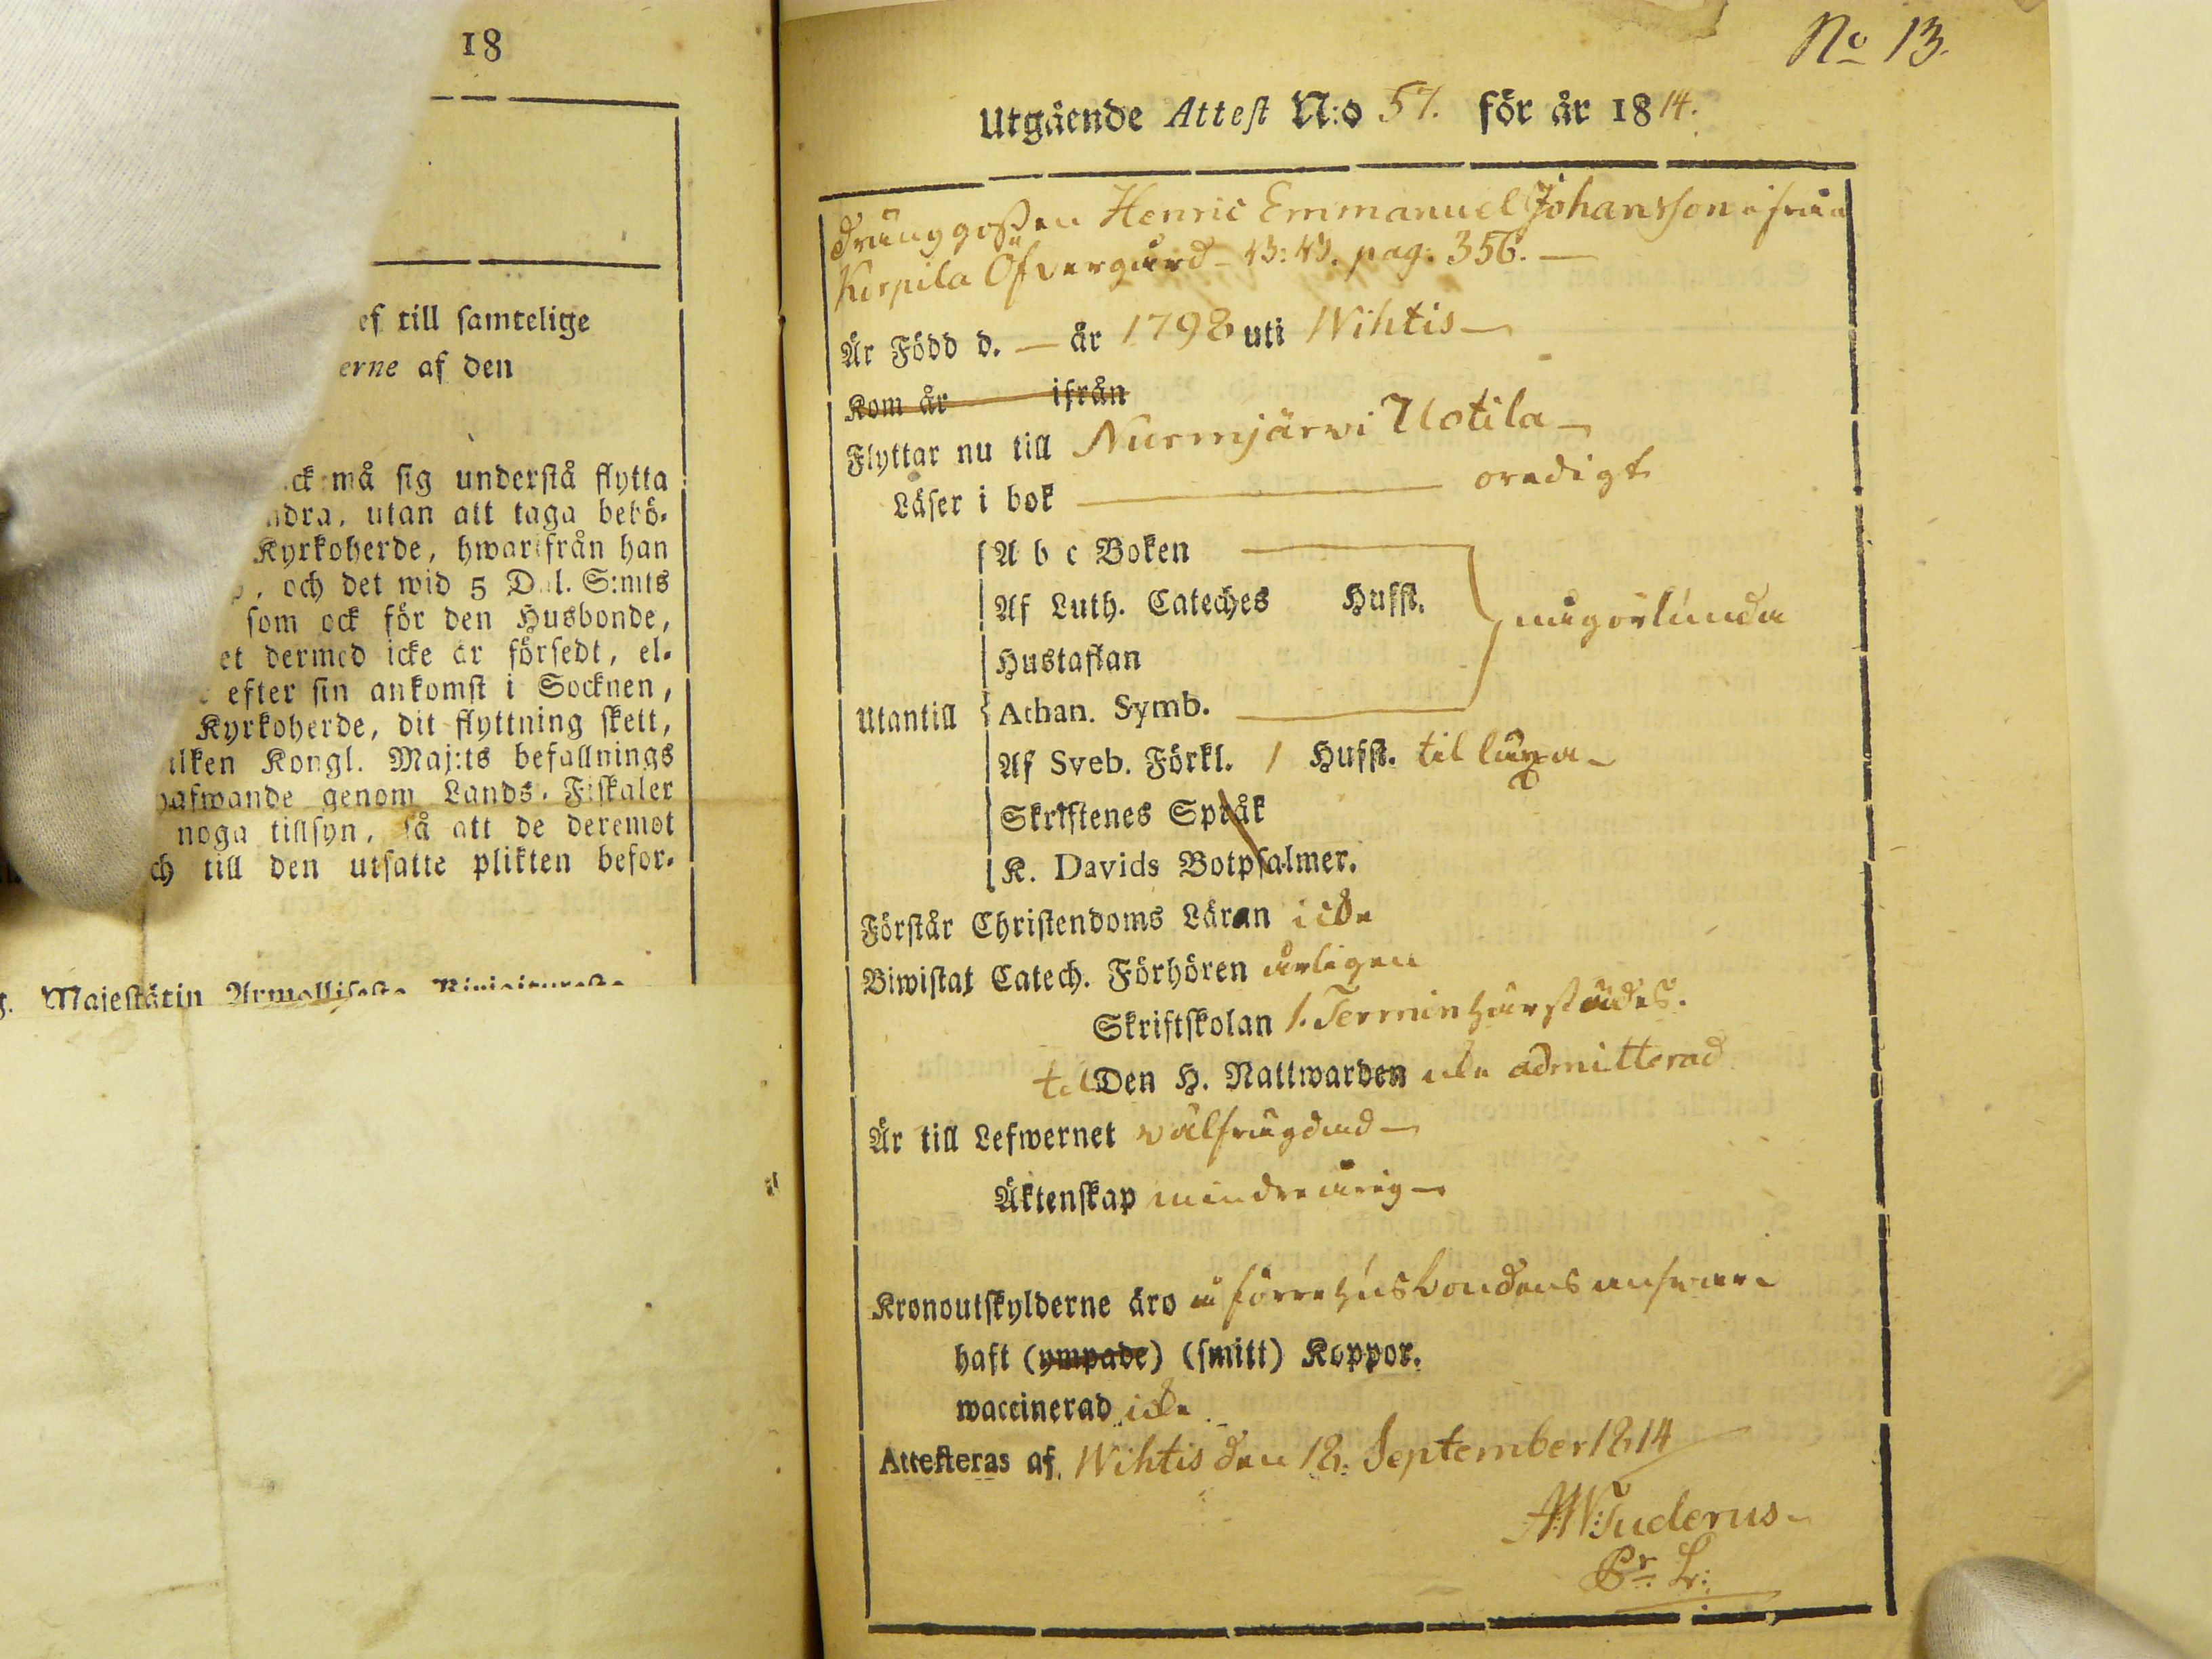 18
ef till samtelige
erne af den
ck må sig understå flytta
ndra, utan att taga behö-
Kyrkoherde, hwarifrån han
, och det wid 5 Dal. S:mts
som ock för den Husbonde,
et dermed icke är försedt, el-
efter sin ankomst i Socknen,
Kyrkoherde, dit flyttning skett,
ilken Kongl. Maj:ts befallnings
hafwande genom Lands-Fiskaler
noga tillsyn, så att de deremot
ch till den utsatte plikten befor-
g. Majestätin Armollisesta
No 13.
Utgående Attest N:o 57. för år 1814.
Dränggossen Henric Emmanuel Johansson ifrån
Korpila Öfvergård pag: 356.
Är Född d. — år 1798 uti Wihtis
Kom år ifrån
Flyttar nu till Nurmjärwi Uotila
Läser i bok oredigt
A b c Boken
Af Luth. Cateches Hufst. någorlunda
Hustaflan
Utantill Athan. Symb.
Af Sveb. Förkl. 1 Hufst. til lära
Skriftenes Språk
K. Davids Botpsalmer.
Förstår Christendoms Läran icke
Biwistat Catech. Förhören årligen
Skriftskolan 1. Termin härstädes.
til Den H. Nattwarden icke admitterad
Är till Lefwernet välfrägdad
Äktenskap mindreårig
Kronoutskylderne äro å förre husbondens answar
haft (ympade) (smitt) Koppor.
waccinerad icke
Attesteras af Wihtis den 18. September 1814
AW:Tuderus
Pr. L: